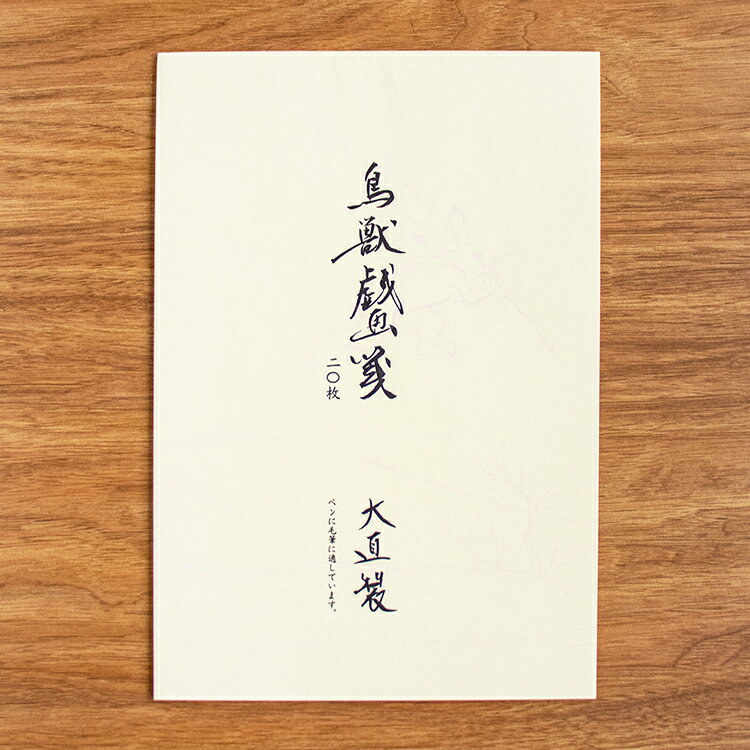 鳥獣戯画箋
二〇枚
大直製
ペンに毛筆に適しています。